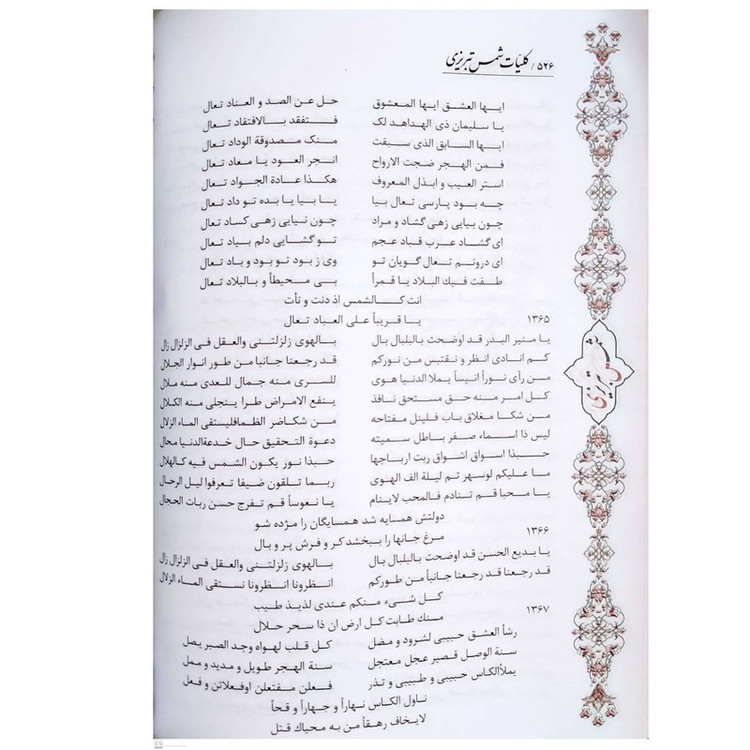 ۵۲۶ / کلیّات شمس تبریزی
ایها العشق ایها المعشوق حل عن الصد و العناد تعال
یا سلیمان ذی الهداهد لک فتفقد بالافتقاد تعال
ایها السابق الذی سبقت منک مصدوقة الوداد تعال
فمن الهجر ضجت الارواح انجر العود یا معاد تعال
استر العیب و ابذل المعروف هکذا عادة الجواد تعال
چه بود پارسی تعال بیا یا بیا یا بده تو داد تعال
چون بیایی زهی گشاد و مراد چون نیایی زهی کساد تعال
ای گشاد عرب قباد عجم تو گشایی دلم بیاد تعال
ای درونم تعال گویان تو وی ز بود تو بود و باد تعال
طفت فیک البلاد یا قمراً بی محیطاً و بالبلاد تعال
انت کالشمس اذ دنت و نأت
یا قریباً علی العباد تعال
۱۳۶۵
یا منیر البدر قد اوضحت بالبلبال بال بالهوی زلزلتنی والعقل فی الزلزال زال
کم انادی انظر و نقتبس من نورکم قد رجعنا جانبا من طور انوار الجلال
من رأی نوراً انیساً یملا الدنیا هوی للسری منه جمال للعدی منه ملال
کل امر منه حق مستحق نافذ ینفع الامراض طرا ینجلی منه الکلال
من شکا مغلاق باب فلینل مفتاحه من شکاضر الظمافلیستقی الماء الزلال
لیس ذا اسماء صفر باطل سمیته دعوة التحقیق حال خدعةالدنیا محال
حبذا اسواق اشواق ربت ارباجها حبذا نور یکون الشمس فیه کالهلال
ما علیکم لوسهر تم لیلة الف الهوی ربما تلقون ضیفا تعرفوا لیل الرحال
یا محبا قم تنادم فالمحب لاینام یا نعوساً قم تفرج حسن ربات الحجال
دولتش همسایه شد همسایگان را مژده شو
مرغ جانها را ببخشد کر و فرش پر و بال
۱۳۶۶
یا بدیع الحسن قد اوضحت بالبلبال بال بالهوی زلزلتنی والعقل فی الزلزال زال
قد رجعنا قد رجعنا جانباً من طورکم انظرونا انظرونا نستقی الماء الزلال
کل شیء منکم عندی لذیذ طیب
منک طابت کل ارض ان ذا سحر حلال
۱۳۶۷
رشأ العشق حبیبی لشرود و مضل کل قلب لهواه وجد الصبر یصل
سنة الوصل قصیر عجل معتجل سنة الهجر طویل و مدید و ممل
یملأالکأس حبیبی و طبیبی و تذر فعلن مفتعلن اوفعلاتن و فعل
ناول الکاس نهاراً و جهاراً و قحاً
لایخاف رهقاً من به محیاک قتل